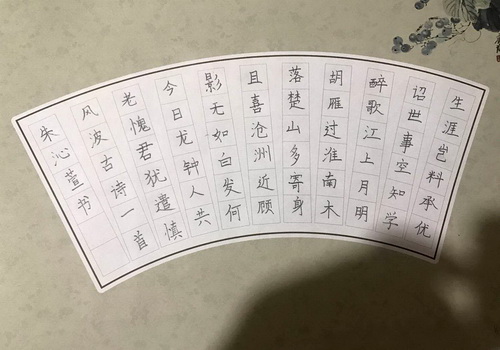 生涯岂料承优
诏世事空知学
醉歌江上月明
胡雁过淮南木
落楚山多寄身
且喜沧洲近顾
影无如白发何
今日龙钟人共
老愧君犹遣慎
风波古诗一首
朱沁萱书